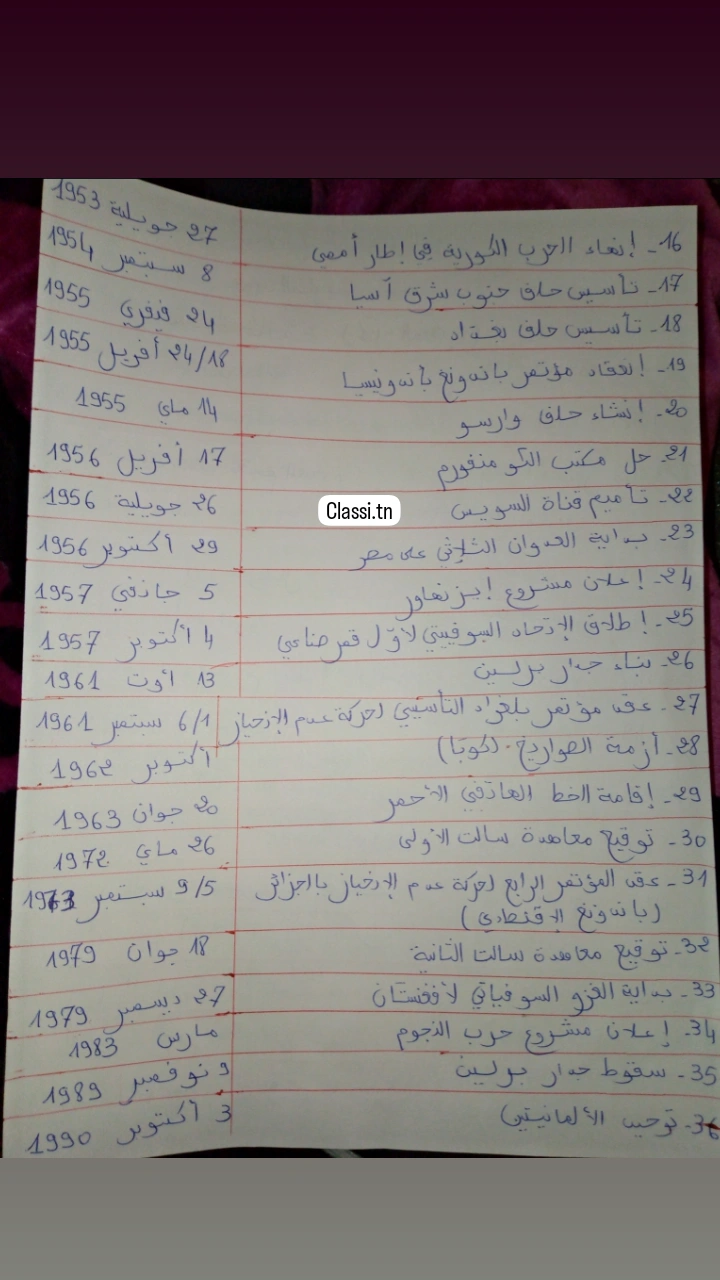 16- إنهاء الحرب الكورية في إطار أممي 27 جويلية 1953
17- تأسيس حلف جنوب شرق آسيا 8 سبتمبر 1954
18- تأسيس حلف بغداد 24 فيفري 1955
19- إنعقاد مؤتمر باندونغ بأندونيسيا 24/18 أفريل 1955
20- إنشاء حلف وارسو 14 ماي 1955
21- حل مكتب الكومنفورم 17 أفريل 1956
22- تأميم قناة السويس 26 جويلية 1956
Classi.tn
23- بداية العدوان الثلاثي على مصر 29 أكتوبر 1956
24- إعلان مشروع إيزنهاور 5 جانفي 1957
25- إطلاق الإتحاد السوفييتي لأوّل قمر صناعي 4 أكتوبر 1957
26- بناء جدار برلين 13 أوت 1961
27- عقد مؤتمر بلغراد التأسيسي لحركة عدم الإنحياز 6/1 سبتمبر 1961
28- أزمة الصواريخ (كوبا) أكتوبر 1962
29- إقامة الخط الهاتفي الأحمر 20 جوان 1963
30- توقيع معاهدة سالت الأولى 26 ماي 1972
31- عقد المؤتمر الرابع لحركة عدم الإنحياز بالجزائر 9/5 سبتمبر 1973
(باندونغ الإقتصادي)
32- توقيع معاهدة سالت الثانية 18 جوان 1979
33- بداية الغزو السوفياتي لأفغنستان 27 ديسمبر 1979
34- إعلان مشروع حرب النجوم مارس 1983
35- سقوط جدار برلين 9 نوفمبر 1989
36- توحيد الألمانيتين 3 أكتوبر 1990